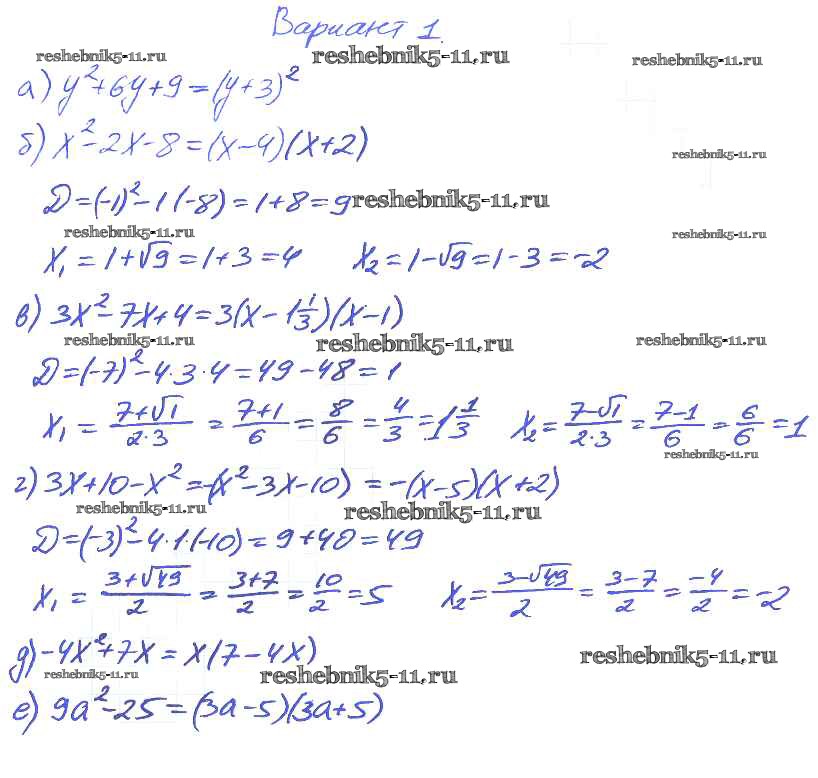 Вариант 1.
reshebnik5-11.ru reshebnik5-11.ru reshebnik5-11.ru
а) y²+6y+9=(y+3)²
б) x²-2x-8=(x-4)(x+2)
reshebnik5-11.ru
D=(-1)²-1(-8)=1+8=9 reshebnik5-11.ru
reshebnik5-11.ru reshebnik5-11.ru
x₁=1+√9=1+3=4 x₂=1-√9=1-3=-2
в) 3x²-7x+4=3(x-1 1/3)(x-1)
reshebnik5-11.ru reshebnik5-11.ru reshebnik5-11.ru
D=(-7)²-4·3·4=49-48=1
x₁=(7+√1)/(2·3)=(7+1)/6=8/6=4/3=1 1/3 x₂=(7-√1)/(2·3)=(7-1)/6=6/6=1
reshebnik5-11.ru
г) 3x+10-x²=-(x²-3x-10)=-(x-5)(x+2)
reshebnik5-11.ru reshebnik5-11.ru
D=(-3)²-4·1·(-10)=9+40=49
x₁=(3+√49)/2=(3+7)/2=10/2=5 x₂=(3-√49)/2=(3-7)/2=-4/2=-2
д) -4x²+7x=x(7-4x) reshebnik5-11.ru
reshebnik5-11.ru reshebnik5-11.ru
е) 9a²-25=(3a-5)(3a+5)